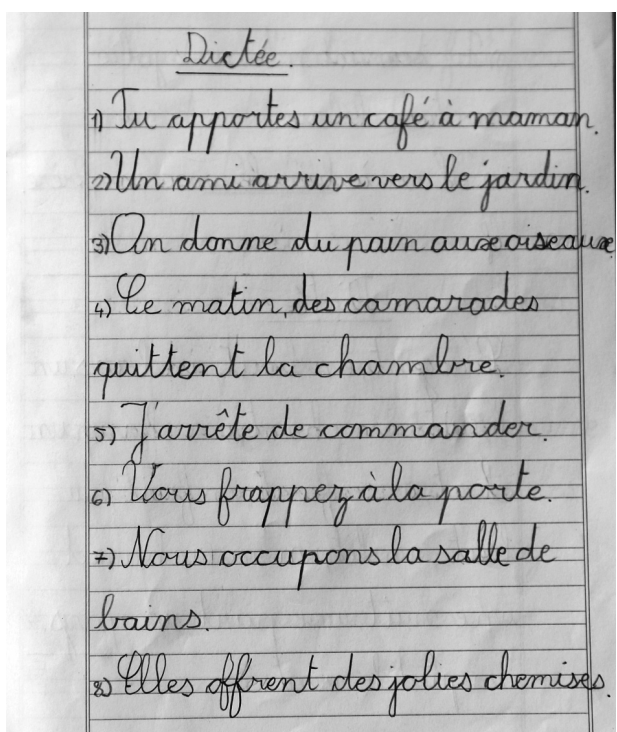 Dictée.
1) Tu apportes un café à maman.
2) Un ami arrive vers le jardin.
3) On donne du pain aux oiseaux
4) Le matin, des camarades
quittent la chambre.
5) J'arrête de commander.
6) Vous frappez à la porte.
7) Nous occupons la salle de
bains.
8) Elles offrent des jolies chemises.